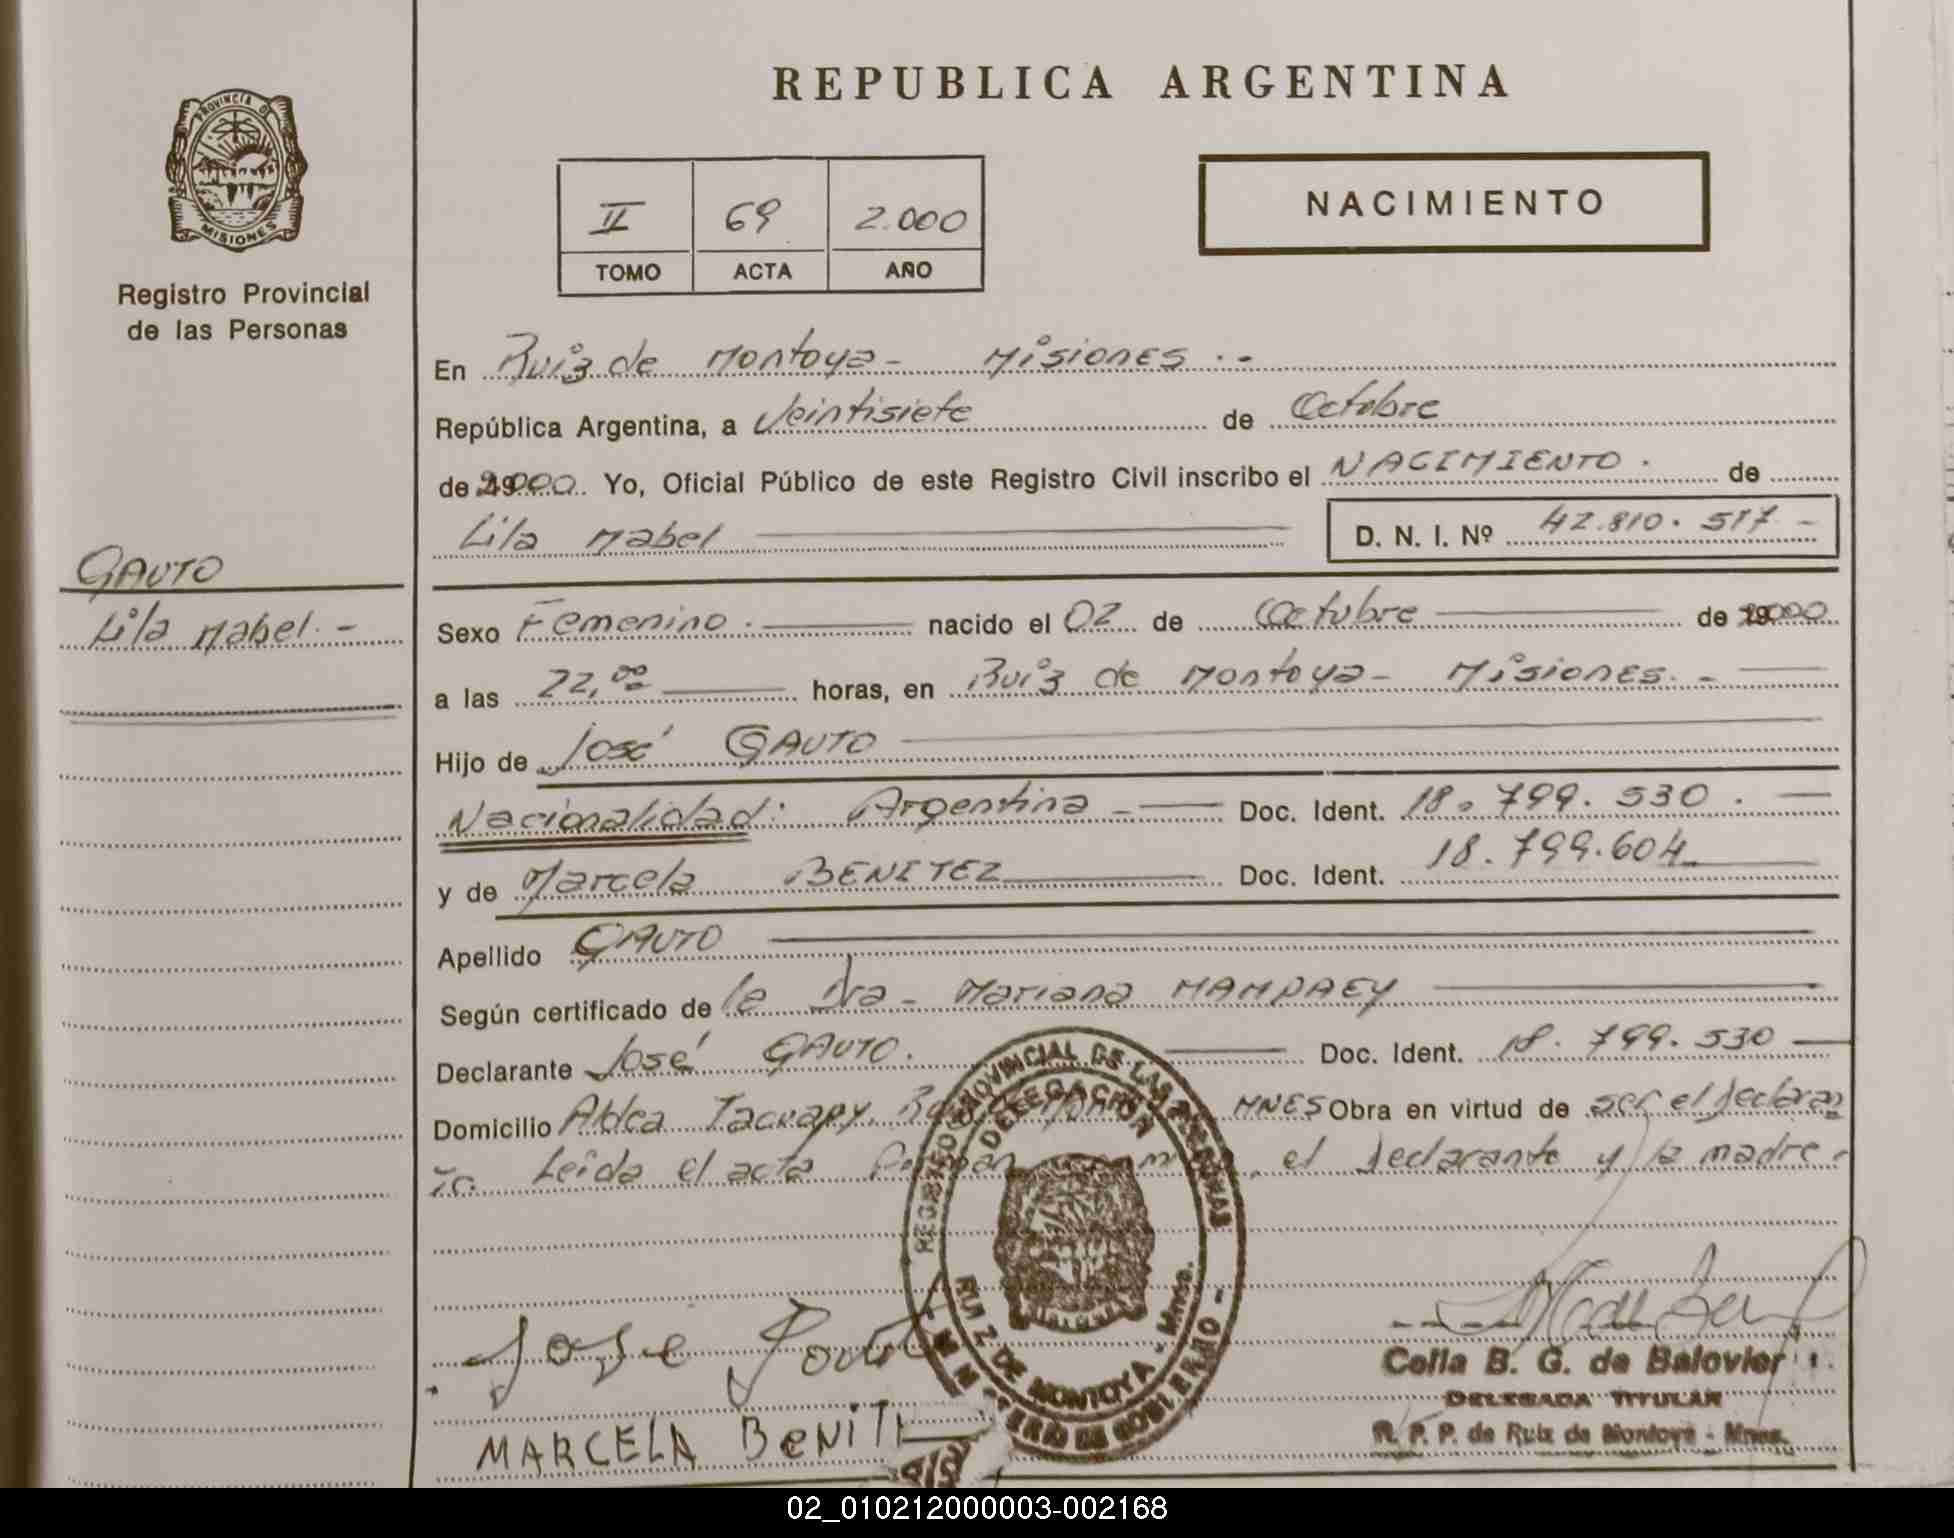 REPUBLICA ARGENTINA
PROVINCIA DE
MISIONES
Registro Provincial
de las Personas
II 69 2.000
TOMO ACTA AÑO
NACIMIENTO
En Ruiz de Montoya - Misiones . -
República Argentina, a Veintisiete de Octubre
de 2.000. Yo, Oficial Público de este Registro Civil inscribo el NACIMIENTO . de
Lila Mabel D. N. I. Nº 42.810.517 -
GAUTO
Lila Mabel . -
Sexo Femenino . nacido el 02 de Octubre de 2000
a las 22,00 horas, en Ruiz de Montoya - Misiones . -
Hijo de José GAUTO
Nacionalidad: Argentina - Doc. Ident. 18.799.530 .
y de Marcela BENITEZ Doc. Ident. 18.799.604
Apellido GAUTO
Según certificado de la Dra - Mariana MAMPAEY
Declarante José GAUTO. Doc. Ident. 18.799.530
Domicilio Aldea Tacuapy. MNES Obra en virtud de ser el declaran
to. Leída el acta el declarante y la madre -
REGISTRO PROVINCIAL DE LAS PERSONAS
DELEGACION
RUIZ DE MONTOYA - Mnes.
MINISTERIO DE GOBIERNO -
Jose Gouto
MARCELA BeNIT
Celia B. G. de Balovier
DELEGADA TITULAR
R. P. P. de Ruiz de Montoya - Mnes.
02_010212000003-002168